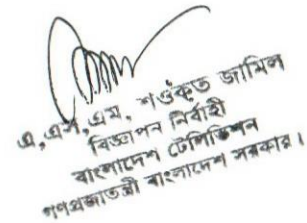 এ, এস, এম, শওকত জামিল
বিজ্ঞাপন নির্বাহী
বাংলাদেশ টেলিভিশন
গণপ্রজাতন্ত্রী বাংলাদেশ সরকার।